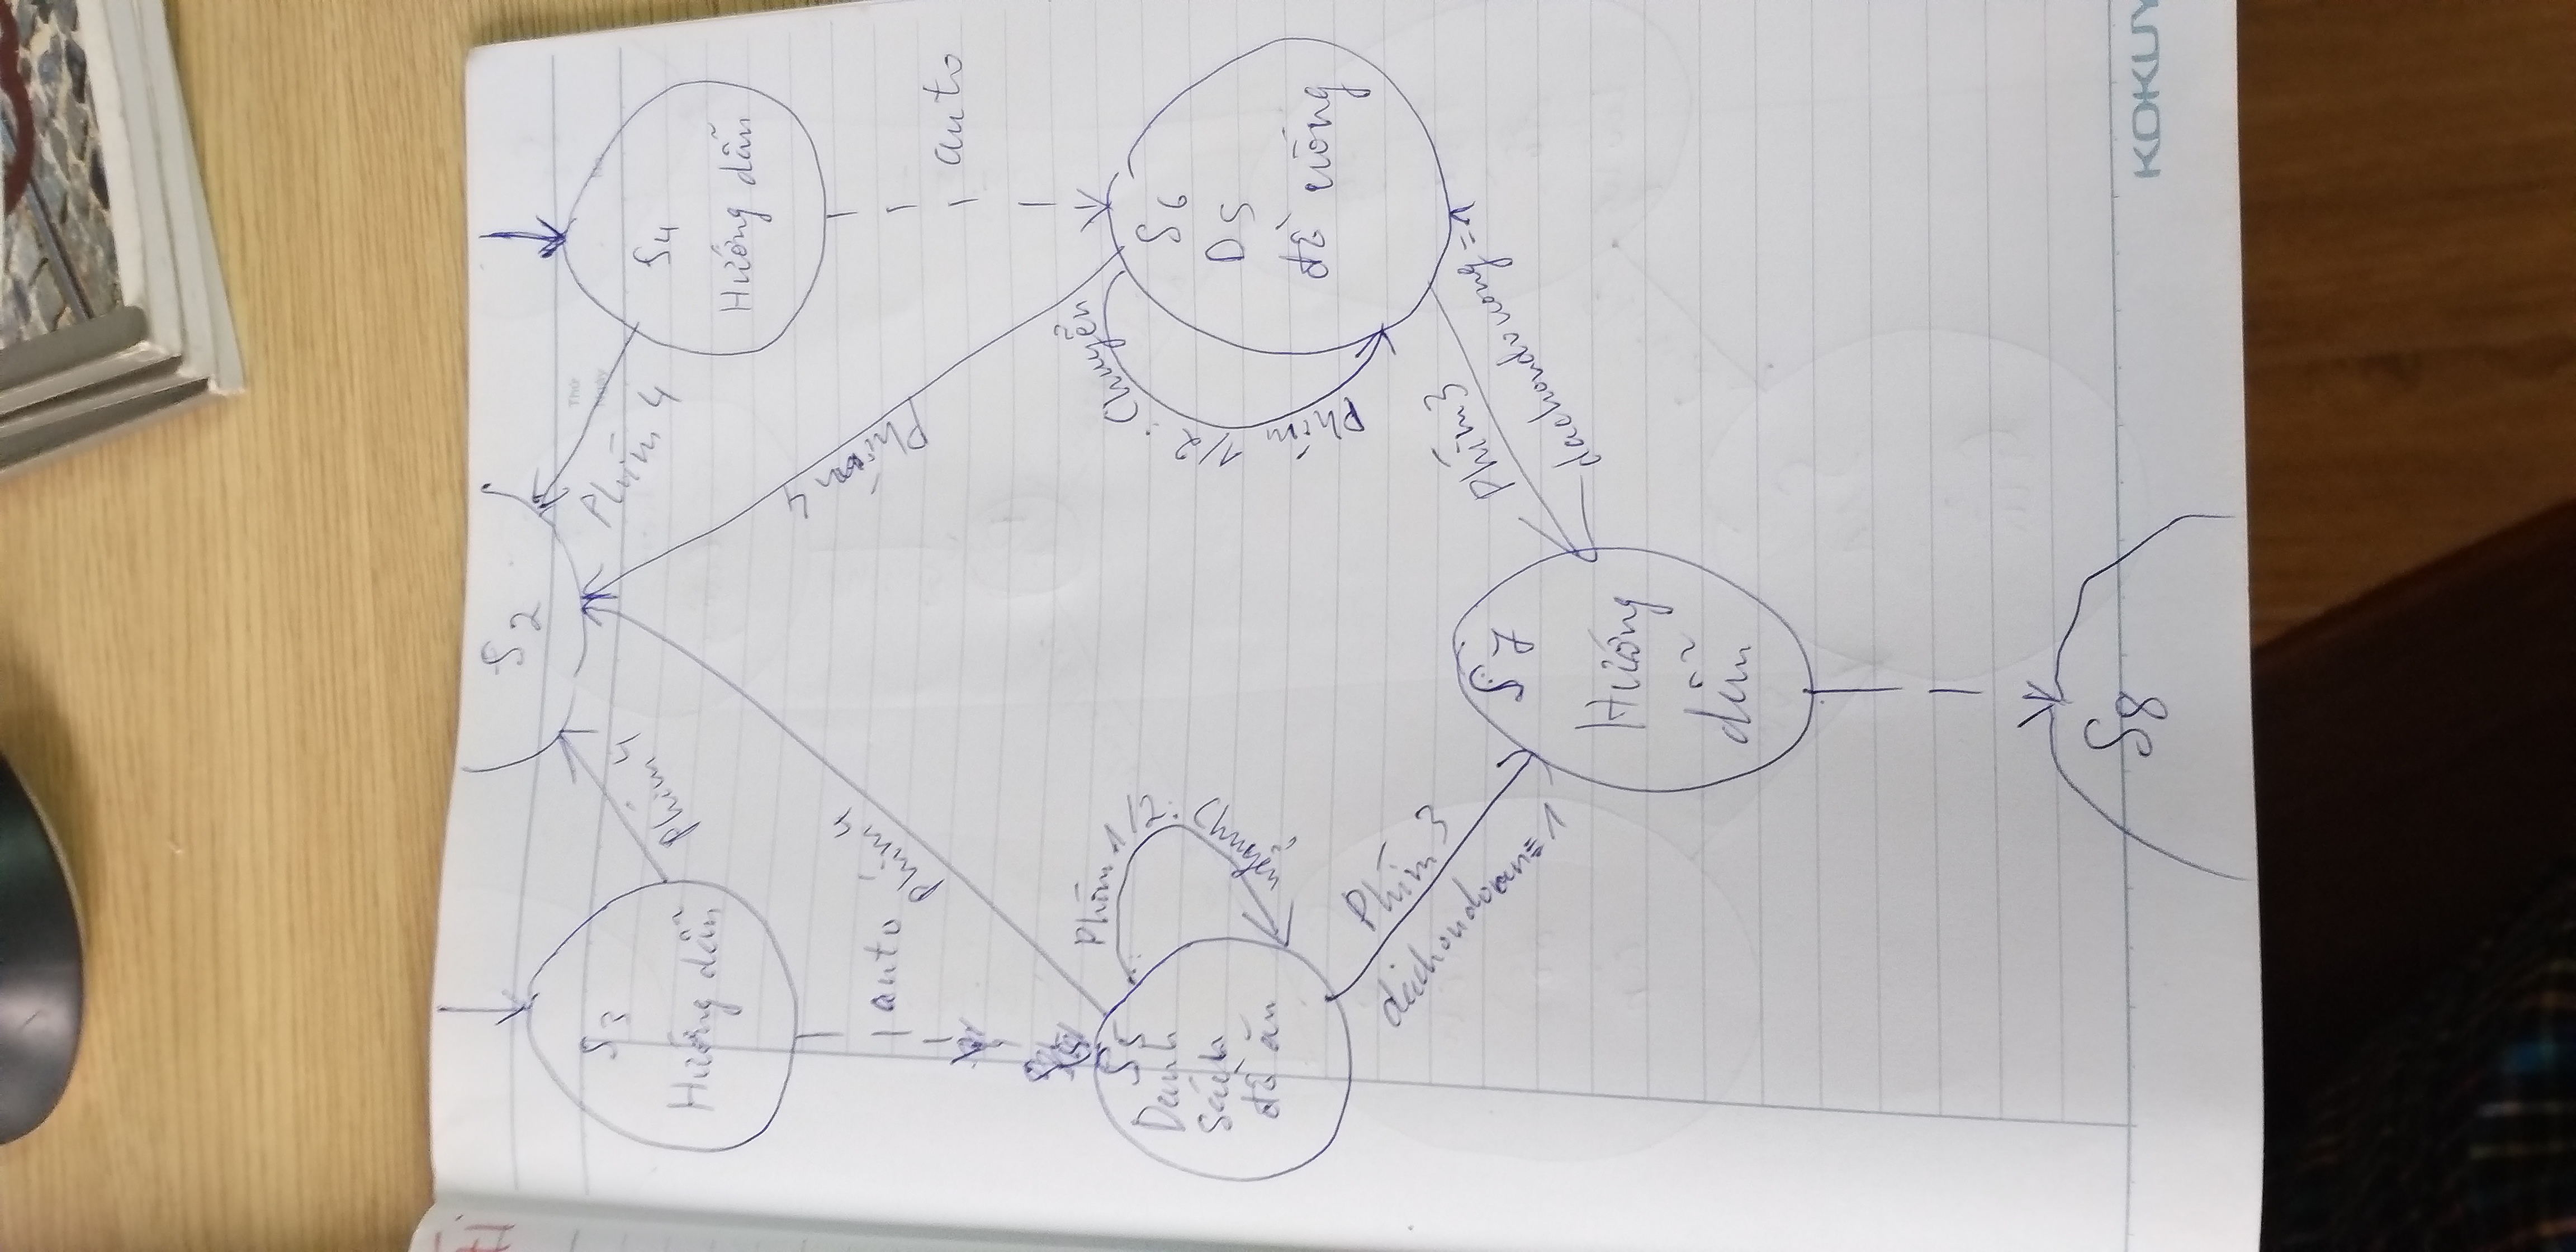 S2
S3
Hướng dẫn
Phím 4
Thứ
Ngày
Phím 4
S4
Hướng dẫn
auto
Phím 4
Phím 4
auto
S5
Danh
sách
đồ ăn
Phím 1/2: Chuyển
Phím 1/2: Chuyển
S6
DS
đồ uống
Phím 3
dachondoan = 1
Phím 3
dachondouong = 1
S7
Hướng
dẫn
S8
KOKUY